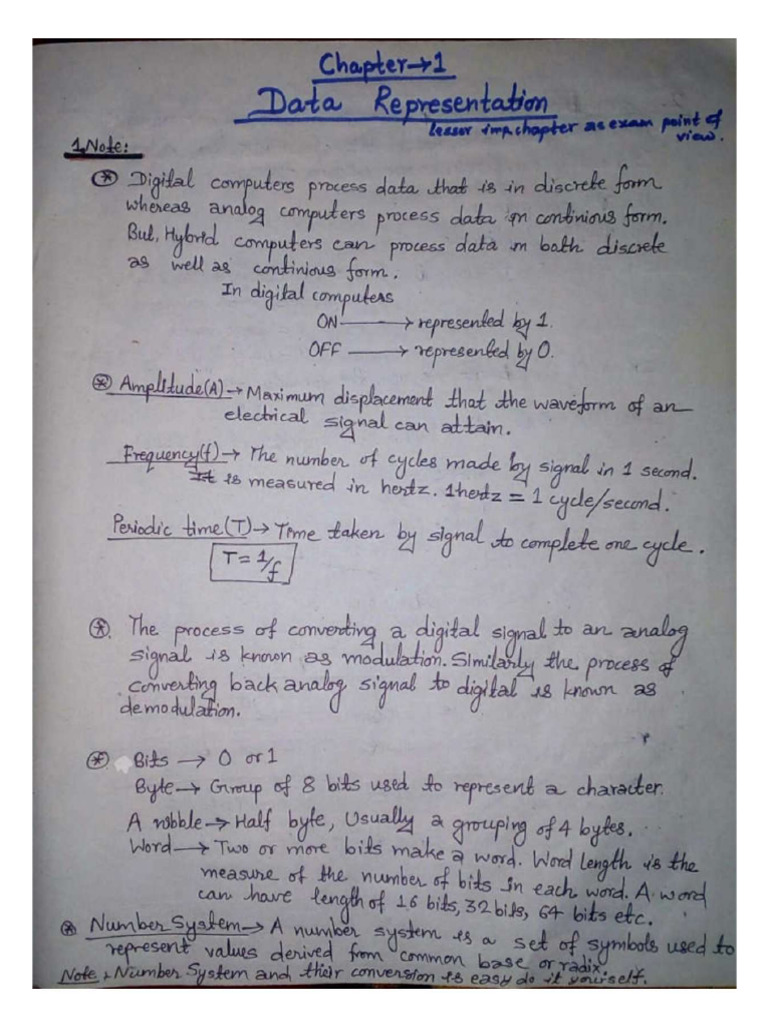 Chapter→1
Data Representation
lesser imp. chapter as exam point of
view.
1. Note:
⊛ Digital computers process data that is in discrete form
whereas analog computers process data in continious form.
But, Hybrid computers can process data in bath discrete
as well as continious form.
In digital computers
ON → represented by 1.
OFF → represented by 0.
⊛ Amplitude(A) → Maximum displacement that the waveform of an
electrical signal can attain.
Frequency(f) → The number of cycles made by signal in 1 second.
It is measured in hertz. 1hertz = 1 cycle/second.
Periodic time(T) → Time taken by signal to complete one cycle.
T = 1/f
⊛. The process of converting a digital signal to an analog
signal is known as modulation. Similarly the process of
converting back analog signal to digital is known as
demodulation.
⊛. Bits → 0 or 1
Byte → Group of 8 bits used to represent a character.
A nibble → Half byte, Usually a grouping of 4 bytes.
Word → Two or more bits make a word. Word length is the
measure of the number of bits in each word. A word
can have length of 16 bits, 32 bits, 64 bits etc.
⊛ Number System → A number system is a set of symbols used to
represent values derived from common base or radix.
Note, Number System and their conversion is easy do it yourself.